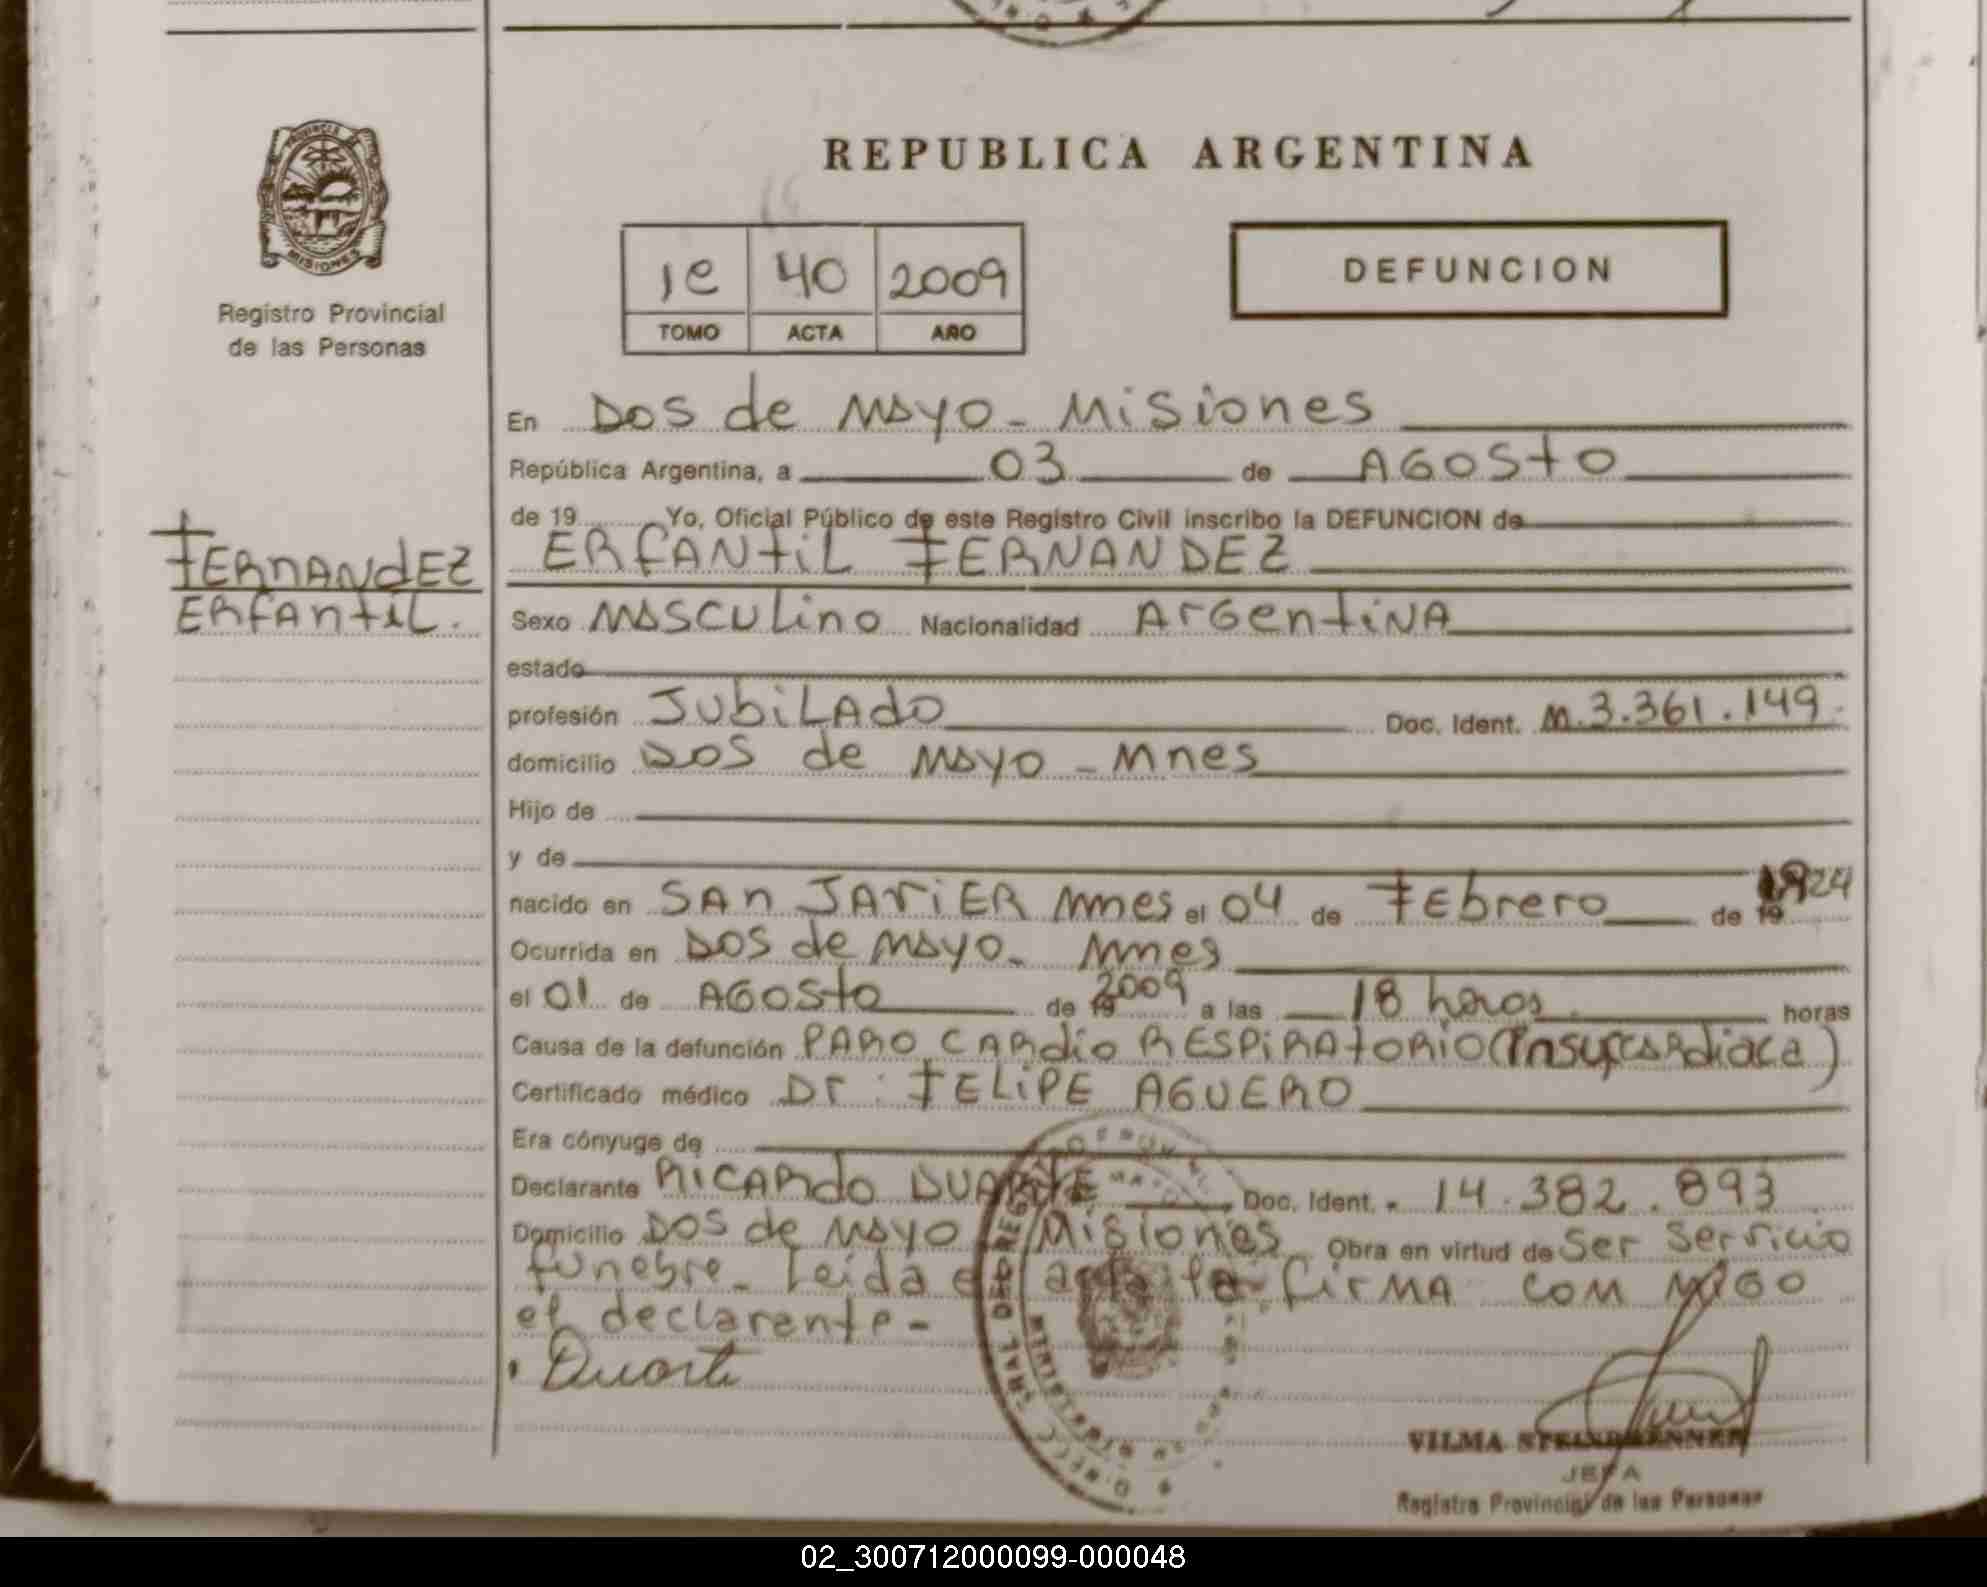 REPUBLICA ARGENTINA
PROVINCIA DE
MISIONES
Registro Provincial
de las Personas
1e 40 2009
TOMO ACTA AÑO
DEFUNCION
FERNANDEZ
ERFANTIL.
En Dos de Mayo - Misiones
República Argentina, a 03 de AGOSTO
de 19 Yo, Oficial Público de este Registro Civil inscribo la DEFUNCION de
ERFANTIL FERNANDEZ
Sexo MASCULINO Nacionalidad ARGENTINA
estado
profesión JUBILADO Doc. Ident. M.3.361.149.
domicilio DOS de MAYO - Mnes
Hijo de
y de
nacido en SAN JAVIER Mnes el 04 de FEbrero de 1924
Ocurrida en DOS de MAYO - Mnes
el 01 de AGOSTO de 2009 a las 18 horas horas
Causa de la defunción PARO CARDIO RESPIRATORIO (insuf cardiaca)
Certificado médico Dr: FELIPE AGUERO
Era cónyuge de
Declarante RICARDO DUARTE Doc. Ident. 14.382.893
Domicilio DOS de MAYO Misiones Obra en virtud de Ser Servicio
funebre - Leida el acta la firma con migo
el declarante -
Duarte
VILMA STEINBRENNER
JEFA
Registro Provincial de las Personas
02_300712000099-000048